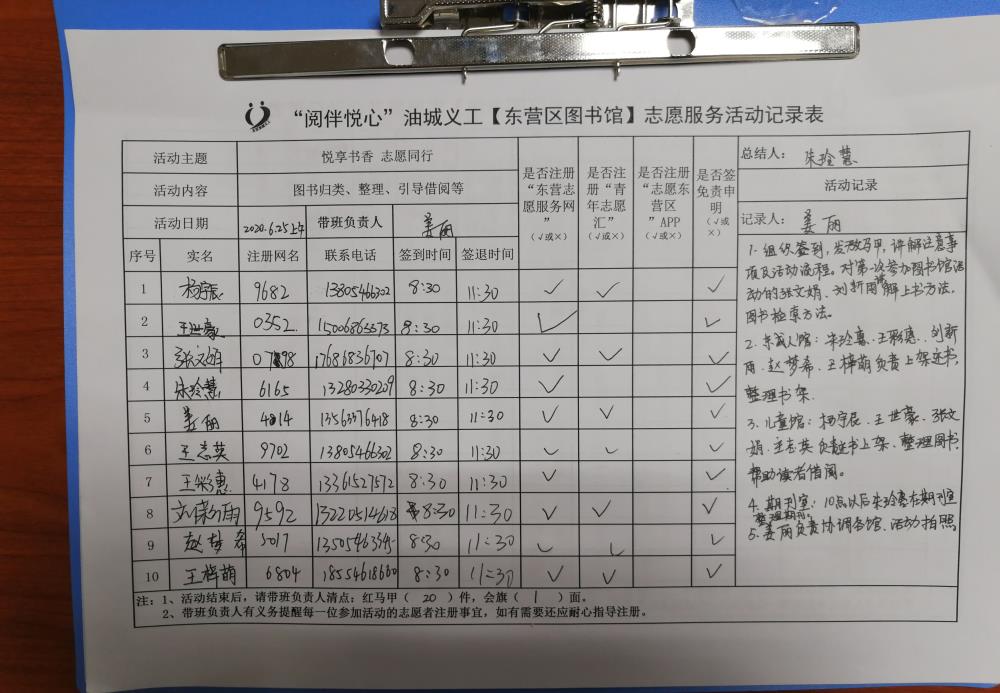 “阅伴悦心”油城义工【东营区图书馆】志愿服务活动记录表
活动主题 悦享书香 志愿同行
活动内容 图书归类、整理、引导借阅等
活动日期 2020.6.25上午 带班负责人 姜丽
是否注册“东营志愿服务网”（√或×）
是否注册“青年志愿汇”（√或×）
是否注册“志愿东营区”APP（√或×）
是否签免责申明（√或×）
总结人： 朱玲慧
活动记录
记录人： 姜丽
序号 实名 注册网名 联系电话 签到时间 签退时间
1 杨宇辰 9682 13805466302 8:30 11:30 √ √ √
2 王世豪 0352 15006863573 8:30 11:30 √ √
3 张文娟 07898 17686836707 8:30 11:30 √ √ √
4 朱玲慧 6165 13280330209 8:30 11:30 √ √
5 姜丽 4814 13563376418 8:30 11:30 √ √ √
6 王志英 9702 13805466302 8:30 11:30 √ √ √
7 王彩惠 4178 13361527572 8:30 11:30 √ √
8 刘新雨 9592 13220514618 8:30 11:30 √ √ √
9 赵梦希 5017 13505463345 8:30 11:30 √ √ √
10 王梓萌 6804 18554618660 8:30 11:30 √ √ √
1.组织签到，发放马甲，讲解注意事
项及活动流程。对第一次参加图书馆活
动的张文娟、刘新雨讲解上书方法，
图书检索方法。
2.成人馆：朱玲慧、王彩惠、刘新
雨、赵梦希、王梓萌负责上架还书，
整理书架.
3.儿童馆：杨宇辰、王世豪、张文
娟、王志英负责还书上架、整理图书，
帮助读者借阅。
4.期刊室：10点以后朱玲慧在期刊室
整理期刊.
5.姜丽负责协调各馆、活动拍照.
注：1、活动结束后，请带班负责人清点：红马甲（ 20 ）件，会旗（ 1 ）面。
2、带班负责人有义务提醒每一位参加活动的志愿者注册事宜，如有需要还应耐心指导注册。